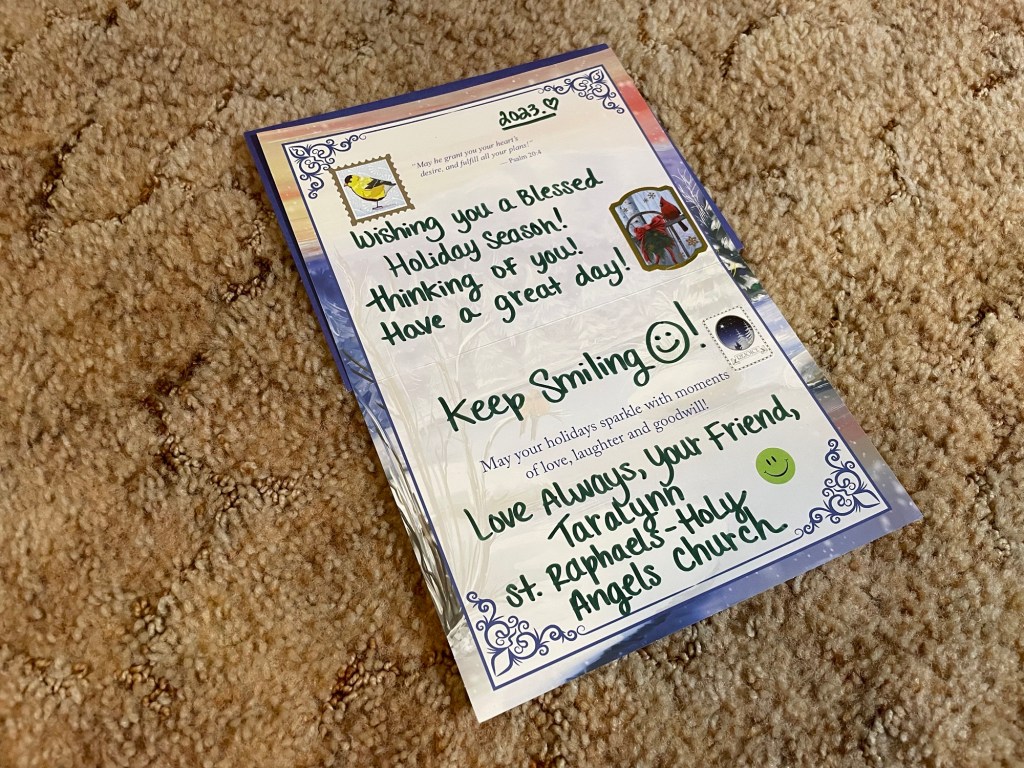 2023. ♡
"May he grant you your heart's
desire, and fulfill all your plans!"
— Psalm 20:4
Wishing you a Blessed
Holiday Season!
thinking of you!
Have a great day!
Keep Smiling ☺!
May your holidays sparkle with moments
of love, laughter and goodwill!
Love Always, your Friend,
Taralynn
St. Raphaels-Holy
Angels Church